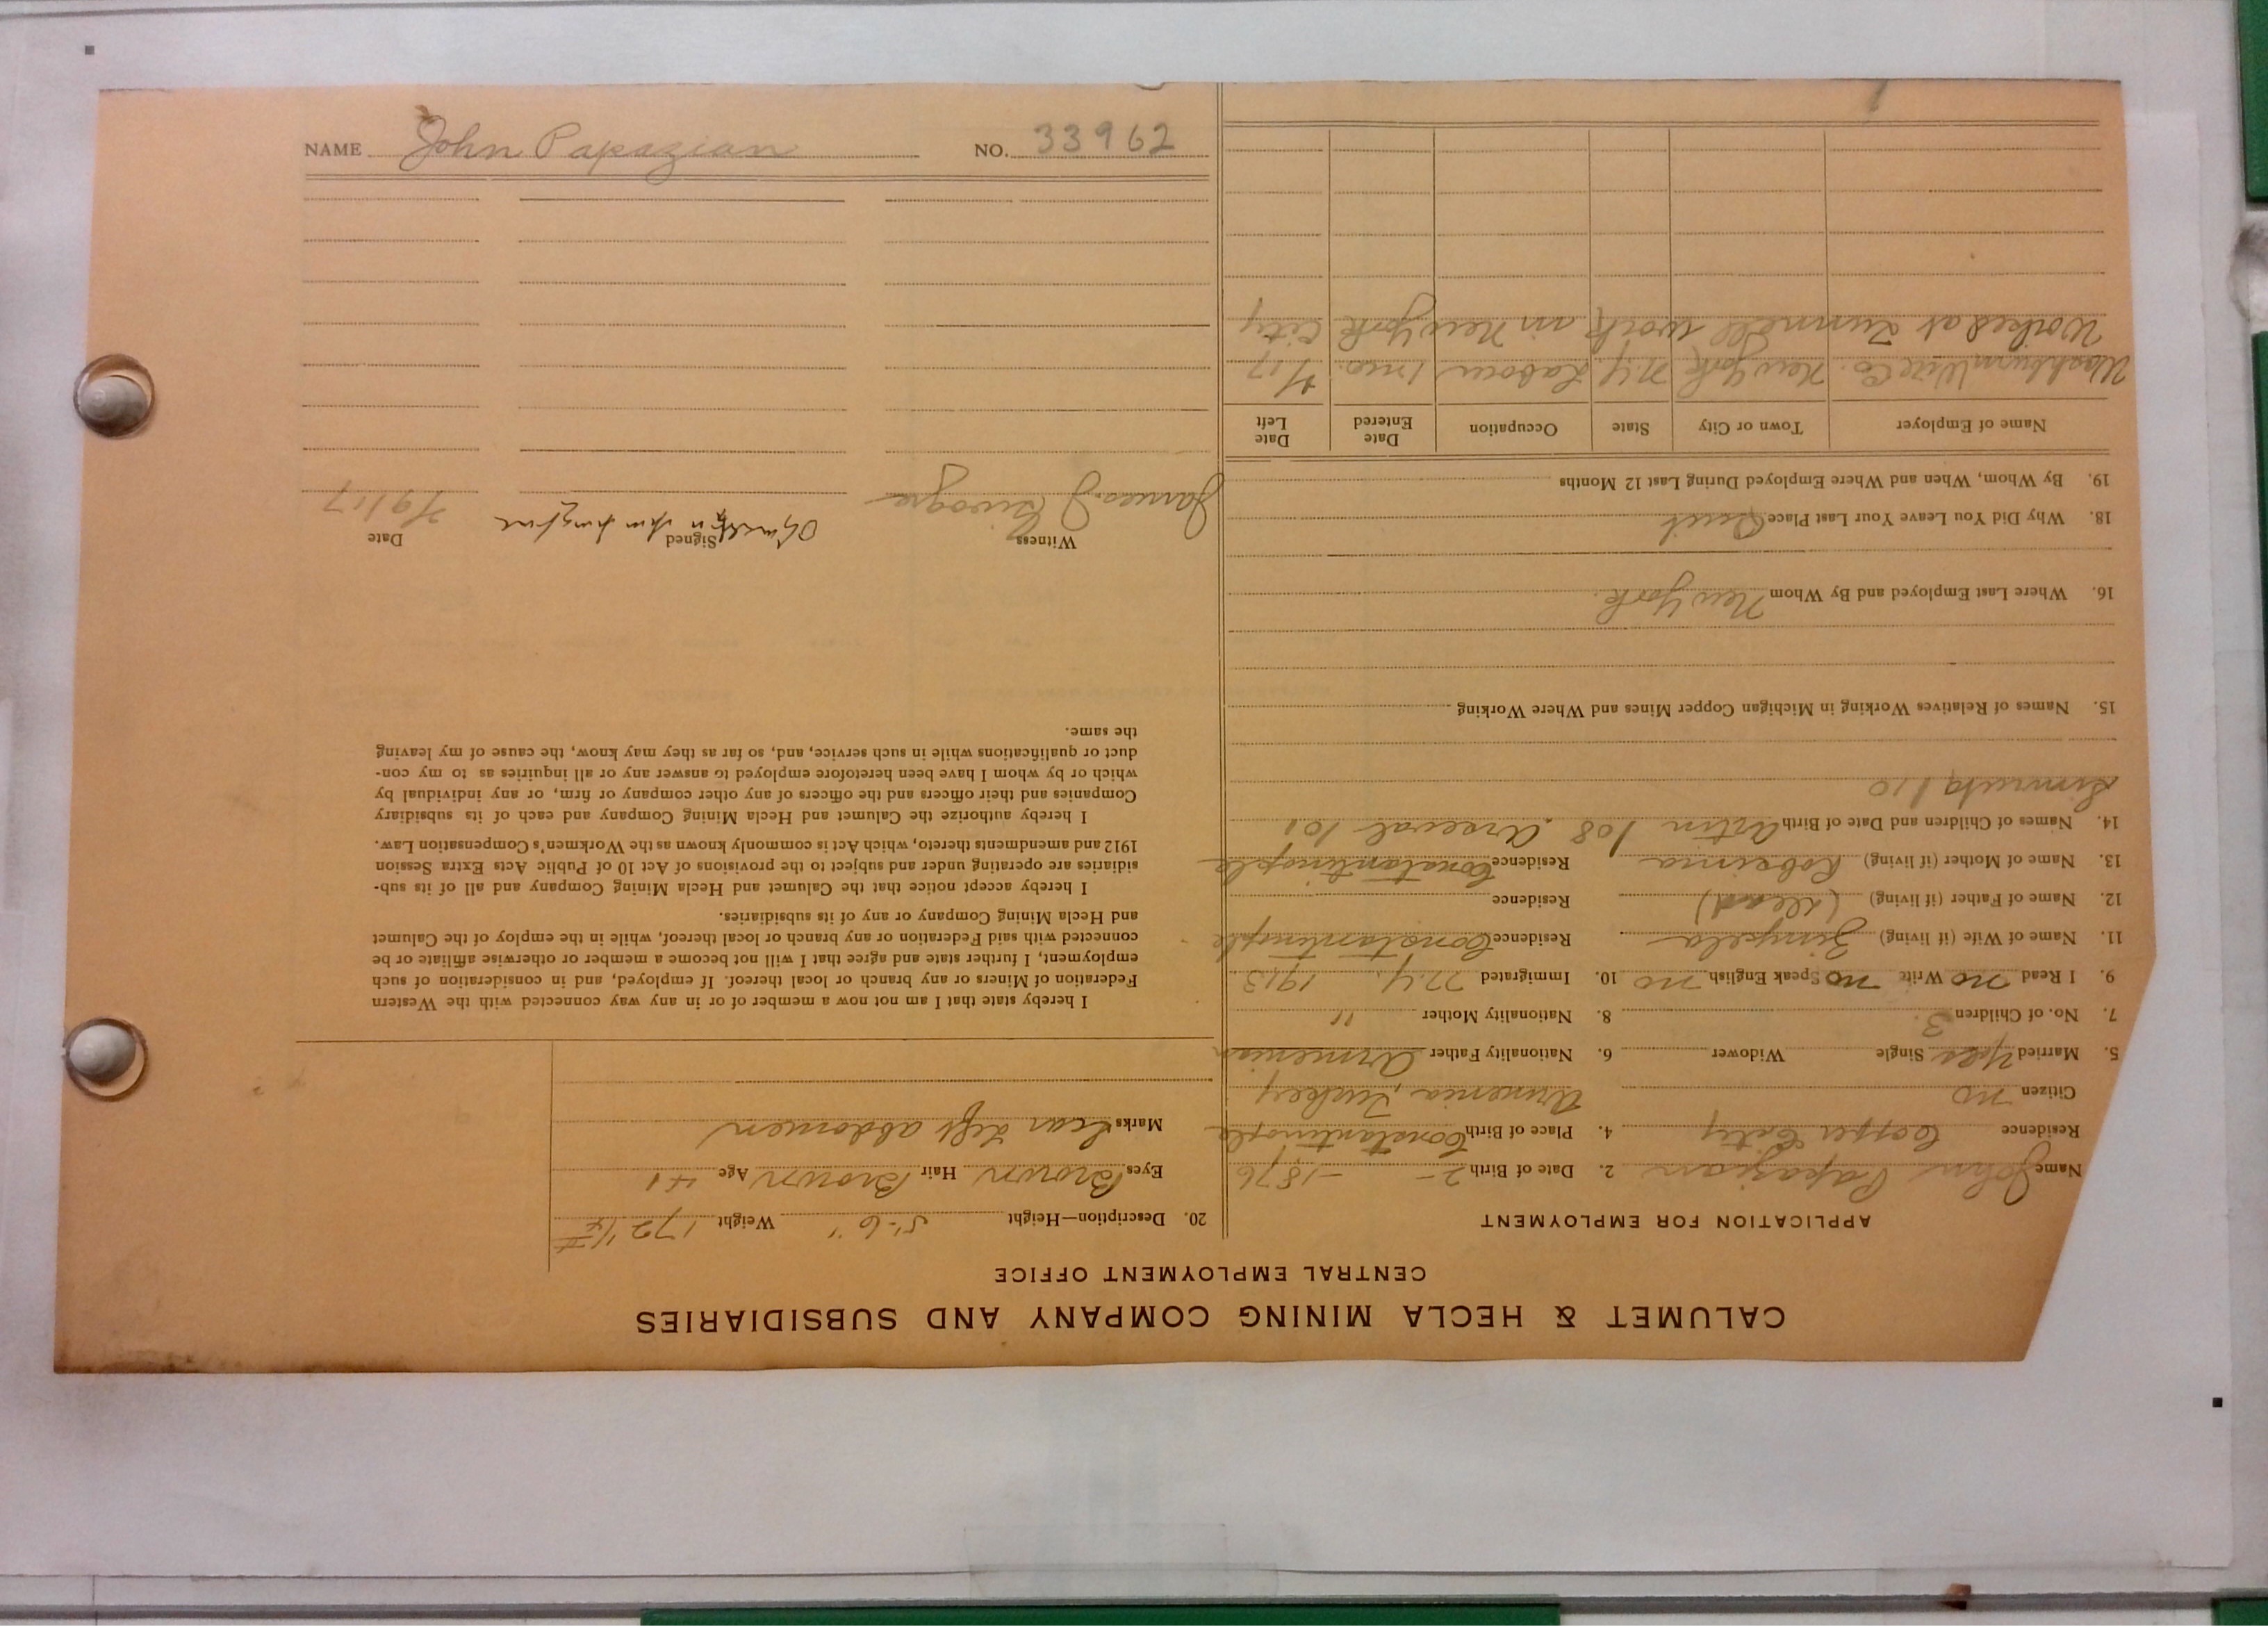 NAME John Papazian NO. 33962
CALUMET & HECLA MINING COMPANY AND SUBSIDIARIES
CENTRAL EMPLOYMENT OFFICE
APPLICATION FOR EMPLOYMENT
Name John Papazian 2. Date of Birth 2 - -1876
Residence Copper City 4. Place of Birth Constantinople
Citizen no Armenia, Turkey
5. Married Yes Single Widower 6. Nationality Father Armenian
7. No. of Children 3. 8. Nationality Mother "
9. I Read no Write no Speak English no 10. Immigrated N.Y. 1913
11. Name of Wife (if living) Residence Constantinople
12. Name of Father (if living) (dead) Residence
13. Name of Mother (if living) Residence Constantinople
14. Names of Children and Date of Birth Artin /08
/10
15. Names of Relatives Working in Michigan Copper Mines and Where Working
16. Where Last Employed and By Whom New York.
18. Why Did You Leave Your Last Place Quit
19. By Whom, When and Where Employed During Last 12 Months
Name of Employer Town or City State Occupation Date Entered Date Left
Washburn Wire Co. New York N.Y. Labour 1 mo. 4/17
Worked at Tunnell work in New York City
20. Description—Height 5'-6" Weight 172 1/2 #
Eyes Brown Hair Brown Age 41
Marks Scar Left abdomen
I hereby state that I am not now a member of or in any way connected with the Western
Federation of Miners or any branch or local thereof. If employed, and in consideration of such
employment, I further state and agree that I will not become a member or otherwise affiliate or be
connected with said Federation or any branch or local thereof, while in the employ of the Calumet
and Hecla Mining Company or any of its subsidiaries.
I hereby accept notice that the Calumet and Hecla Mining Company and all of its sub-
sidiaries are operating under and subject to the provisions of Act 10 of Public Acts Extra Session
1912 and amendments thereto, which Act is commonly known as the Workmen's Compensation Law.
I hereby authorize the Calumet and Hecla Mining Company and each of its subsidiary
Companies and their officers and the officers of any other company or firm, or any individual by
which or by whom I have been heretofore employed to answer any or all inquiries as to my con-
duct or qualifications while in such service, and, so far as they may know, the cause of my leaving
the same.
Witness Signed Date
James J